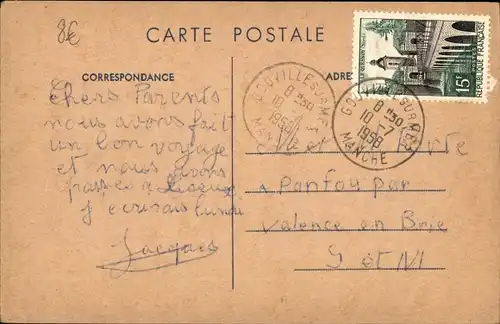 8€
CARTE POSTALE
CORRESPONDANCE
ADRE
Chers Parents
nous avons fait
un bon voyage
et nous avons
passés a Lisieux
j ecrirais lundi
Jacques
GOUVILLE-SUR-MER
8 H 30
10 -7
1958
MANCHE
GOUVILLE-SUR-MER
8 H 30
10 -7
1958
MANCHE
15F
POSTES
REPUBLIQUE FRANÇAISE
M et
a Panfou par
Valence en Brie
S et M